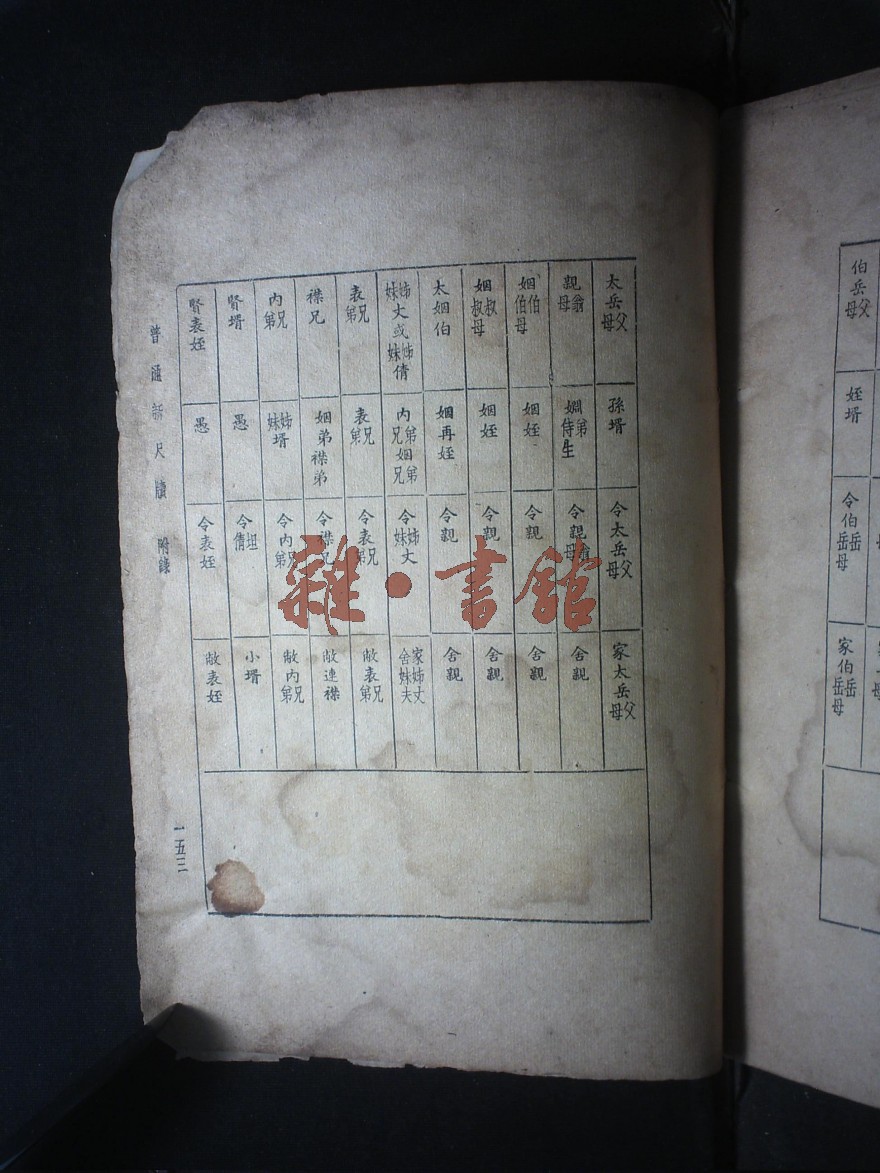 伯岳父母
姪壻
令伯岳岳母
家伯岳岳母
太岳父母
孫壻
令太岳父母
家太岳父母
親翁母
姻弟侍生
令親
舍親
姻伯伯母
姻姪
令親
舍親
姻叔叔母
姻姪
令親
舍親
太姻伯
姻再姪
令親
舍親
姊妹丈或姊妹倩
內弟兄姻弟兄
令姊妹丈
家姊丈舍妹夫
表兄弟
表兄弟
令表兄弟
敝表兄弟
襟兄
姻弟襟弟
令襟兄
敝連襟
內兄弟
姊妹壻
令內兄弟
敝內兄弟
賢壻
愚
令坦倩
小壻
賢表姪
愚
令表姪
敝表姪
普通新尺牘 附錄
一五三
雜·書館